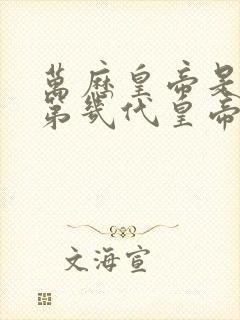 萬歷皇帝是
第幾代皇帝
文海宣